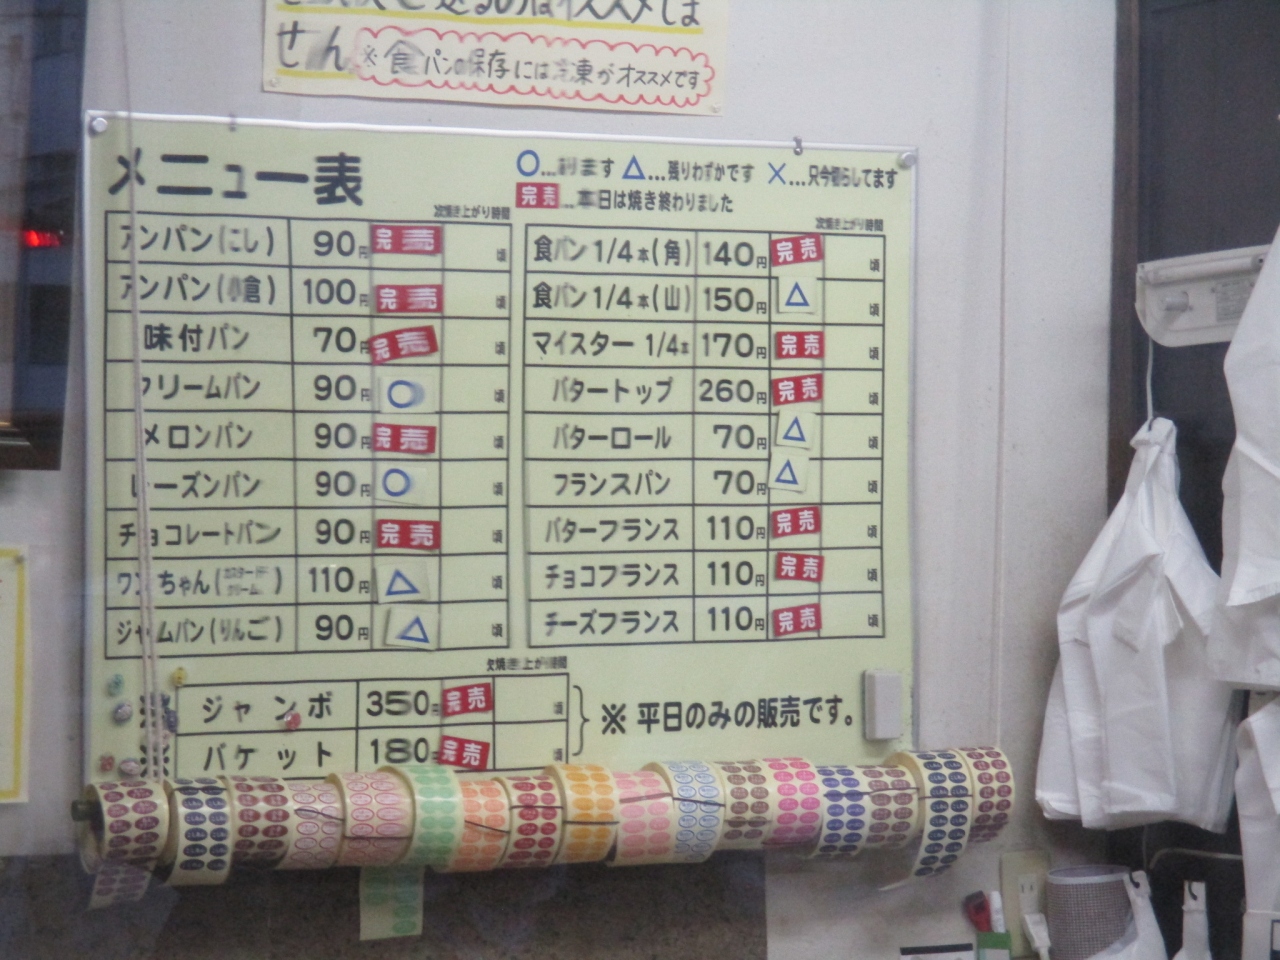 せん ※食パンの保存には冷凍がオススメです
メニュー表
○...あります △...残りわずかです ×...只今切らしてます
完売...本日は焼き終わりました
次焼き上がり時間
アンパン(こし) 90円 完売 頃
アンパン(小倉) 100円 完売 頃
味付パン 70円 完売 頃
クリームパン 90円 ○ 頃
メロンパン 90円 完売 頃
レーズンパン 90円 ○ 頃
チョコレートパン 90円 完売 頃
ワンちゃん(カスタードクリーム) 110円 △ 頃
ジャムパン(りんご) 90円 △ 頃
次焼き上がり時間
食パン1/4本(角) 140円 完売 頃
食パン1/4本(山) 150円 △ 頃
マイスター 1/4本 170円 完売 頃
バタートップ 260円 完売 頃
バターロール 70円 △ 頃
フランスパン 70円 △ 頃
バターフランス 110円 完売 頃
チョコフランス 110円 完売 頃
チーズフランス 110円 完売 頃
次焼き上がり時間
※ ジャンボ 350円 完売 頃
※ バケット 180円 完売 頃
※ 平日のみの販売です。